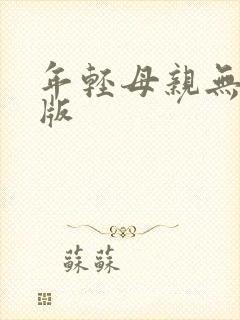 年輕母親無
版
蘇蘇